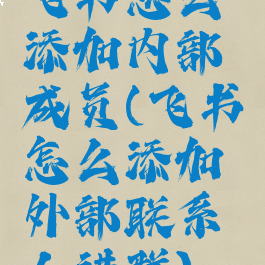 飞书怎么
添加内部
成员(飞书
怎么添加
外部联系
人进群)